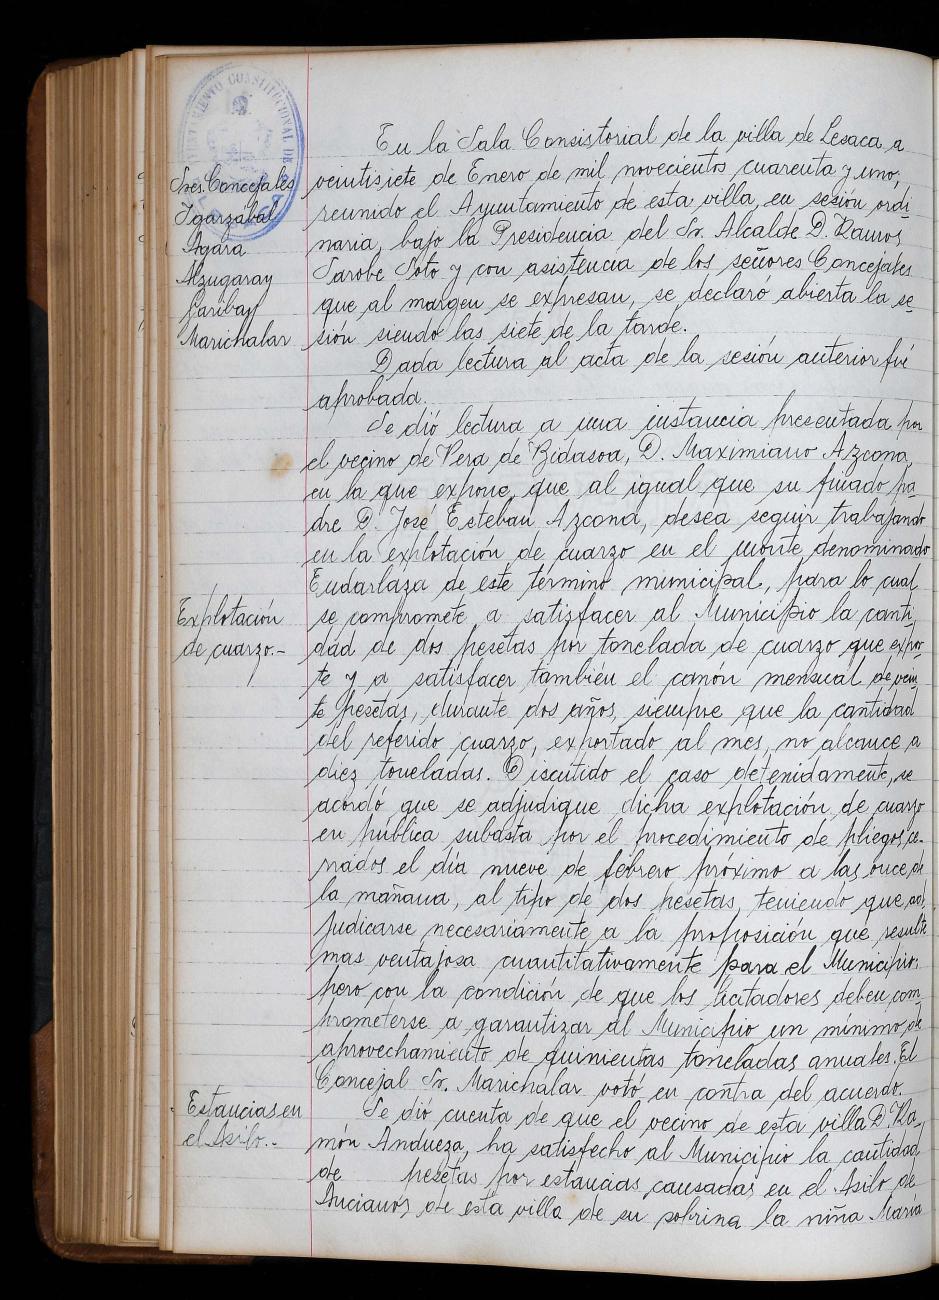 AYUNTAMIENTO CONSTITUCIONAL DE
LESACA
Sres. Concejales
Igarzabal
Agara
Alzugaray
Garibay
Marichalar
En la Sala Consistorial de la villa de Lesaca, a
veintisiete de Enero de mil novecientos cuarenta y uno,
reunido el Ayuntamiento de esta villa, en sesión ordi-
naria, bajo la Presidencia del Sr. Alcalde D. Ramos
Sarobe Soto y con asistencia de los señores Concejales
que al margen se expresan, se declaró abierta la se-
sión siendo las siete de la tarde.
Dada lectura al acta de la sesión anterior fué
aprobada.
Explotación
de cuarzo.-
Se dió lectura a una instancia presentada por
el vecino de Vera de Bidasoa, D. Maximiano Azcona,
en la que expone que al igual que su finado pa-
dre D. José Esteban Azcona, desea seguir trabajando
en la explotación de cuarzo en el monte denominado
Endarlaza de este término municipal, para lo cual
se compromete a satisfacer al Municipio la canti-
dad de dos pesetas por tonelada de cuarzo que expor-
te y a satisfacer también el canón mensual de vein-
te pesetas, durante dos años, siempre que la cantidad
del referido cuarzo, exportado al mes, no alcance a
diez toneladas. Discutido el caso detenidamente, se
acordó que se adjudique dicha explotación de cuarzo
en pública subasta por el procedimiento de pliegos ce-
rrados el día nueve de febrero próximo a las once de
la mañana, al tipo de dos pesetas, teniendo que ad-
judicarse necesariamente a la proposición que resulte
mas ventajosa cuantitativamente para el Municipio;
pero con la condición de que los licitadores deben com-
prometerse a garantizar al Municipio un mínimo de
aprovechamiento de quinientas toneladas anuales. El
Concejal Sr. Marichalar votó en contra del acuerdo.
Estancias en
el Asilo.-
Se dió cuenta de que el vecino de esta villa D. Ra-
món Andueza, ha satisfecho al Municipio la cantidad
de pesetas por estancias causadas en el Asilo de
Ancianos de esta villa de su sobrina la niña María